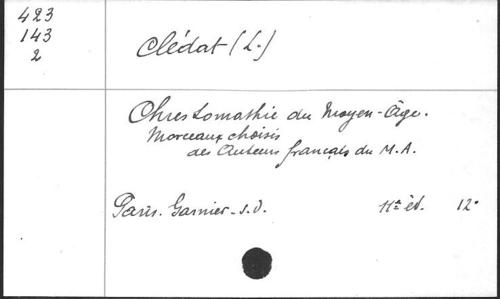 423
143
2
Clédat (L.)
Chrestomathie du Moyen-Âge.
Morceaux choisis
des Auteurs français du M.A.
Paris. Garnier. s.d. 11e éd. 12°